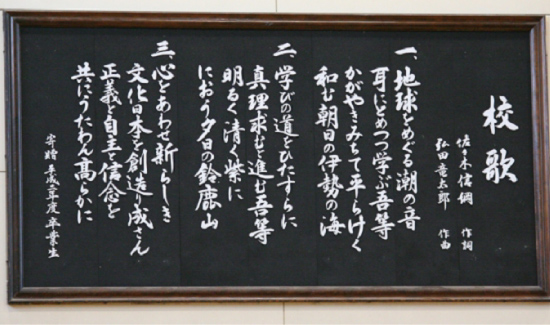 校歌
佐々木信綱 作詞
弘田竜太郎 作曲
一、地球をめぐる潮の音
耳にしめつつ学ぶ吾等
かがやきみちて平らけく
和む朝日の伊勢の海
二、学びの道をひたすらに
真理求むと進む吾等
明るく清く紫に
におう夕日の鈴鹿山
三、心をあわせ新らしき
文化日本を創造り成さん
正義と自主と信念を
共にうたわん高らかに
寄贈 平成二年度 卒業生